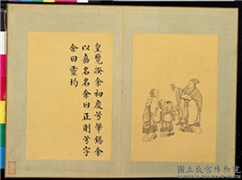 皇覽揆余初度兮肇錫余
以嘉名名余曰正則兮字
余曰靈均
國立故宮博物院